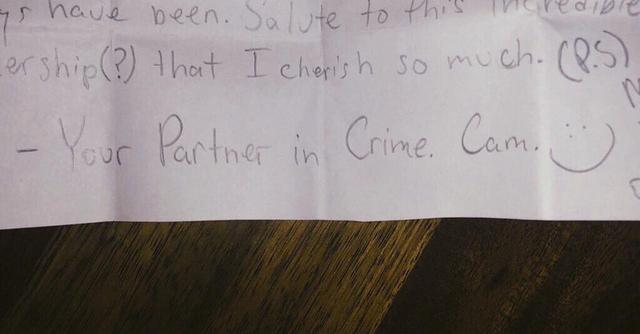 ys have been. Salute to this incredible
ership(?) that I cherish so much. (P.S)
- Your Partner in Crime. Cam. :)